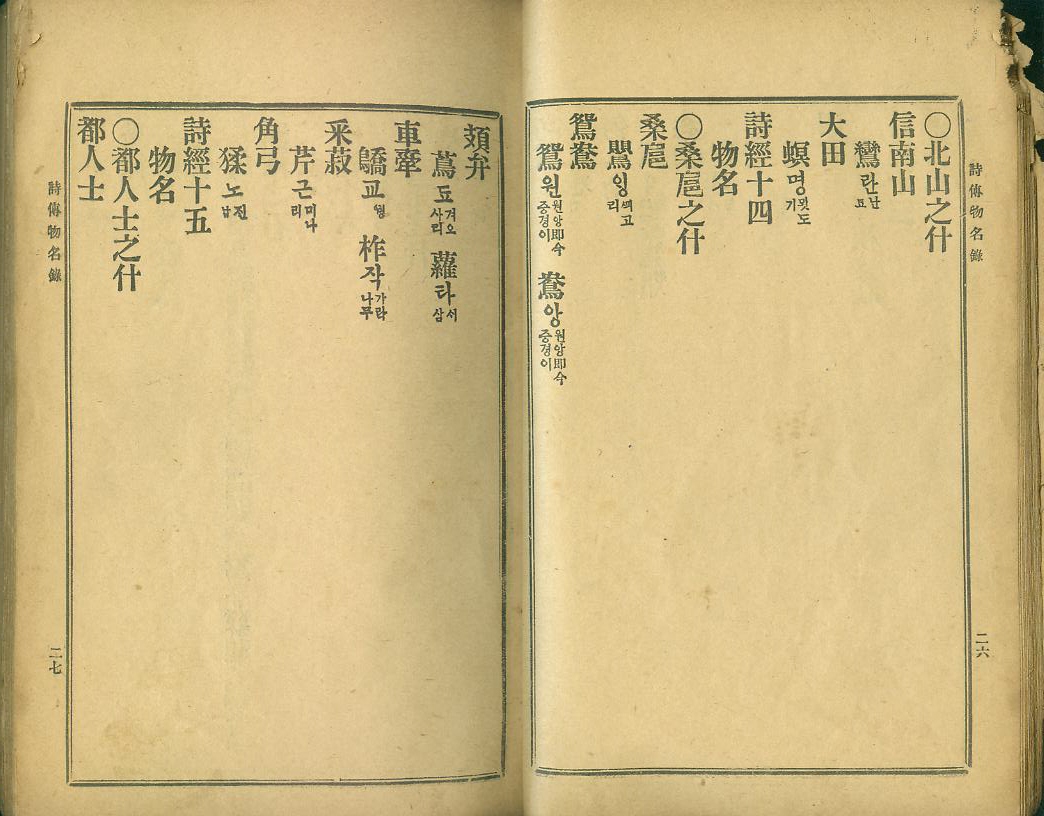 詩傳物名錄
○北山之什
信南山
鸞란난됴
大田
螟명묏도기
詩經十四
物名
○桑扈之什
桑扈
鸎잉
鴛鴦
鴛원원앙即今증경이 鴦앙원앙即今증경이
二六
頍弁
蔦됴겨오사리 蘿라서삼
車舝
鷮교 柞작가락나무
采菽
芹근미나리
角弓
猱노진납
詩經十五
物名
○都人士之什
都人士
詩傳物名錄
二七